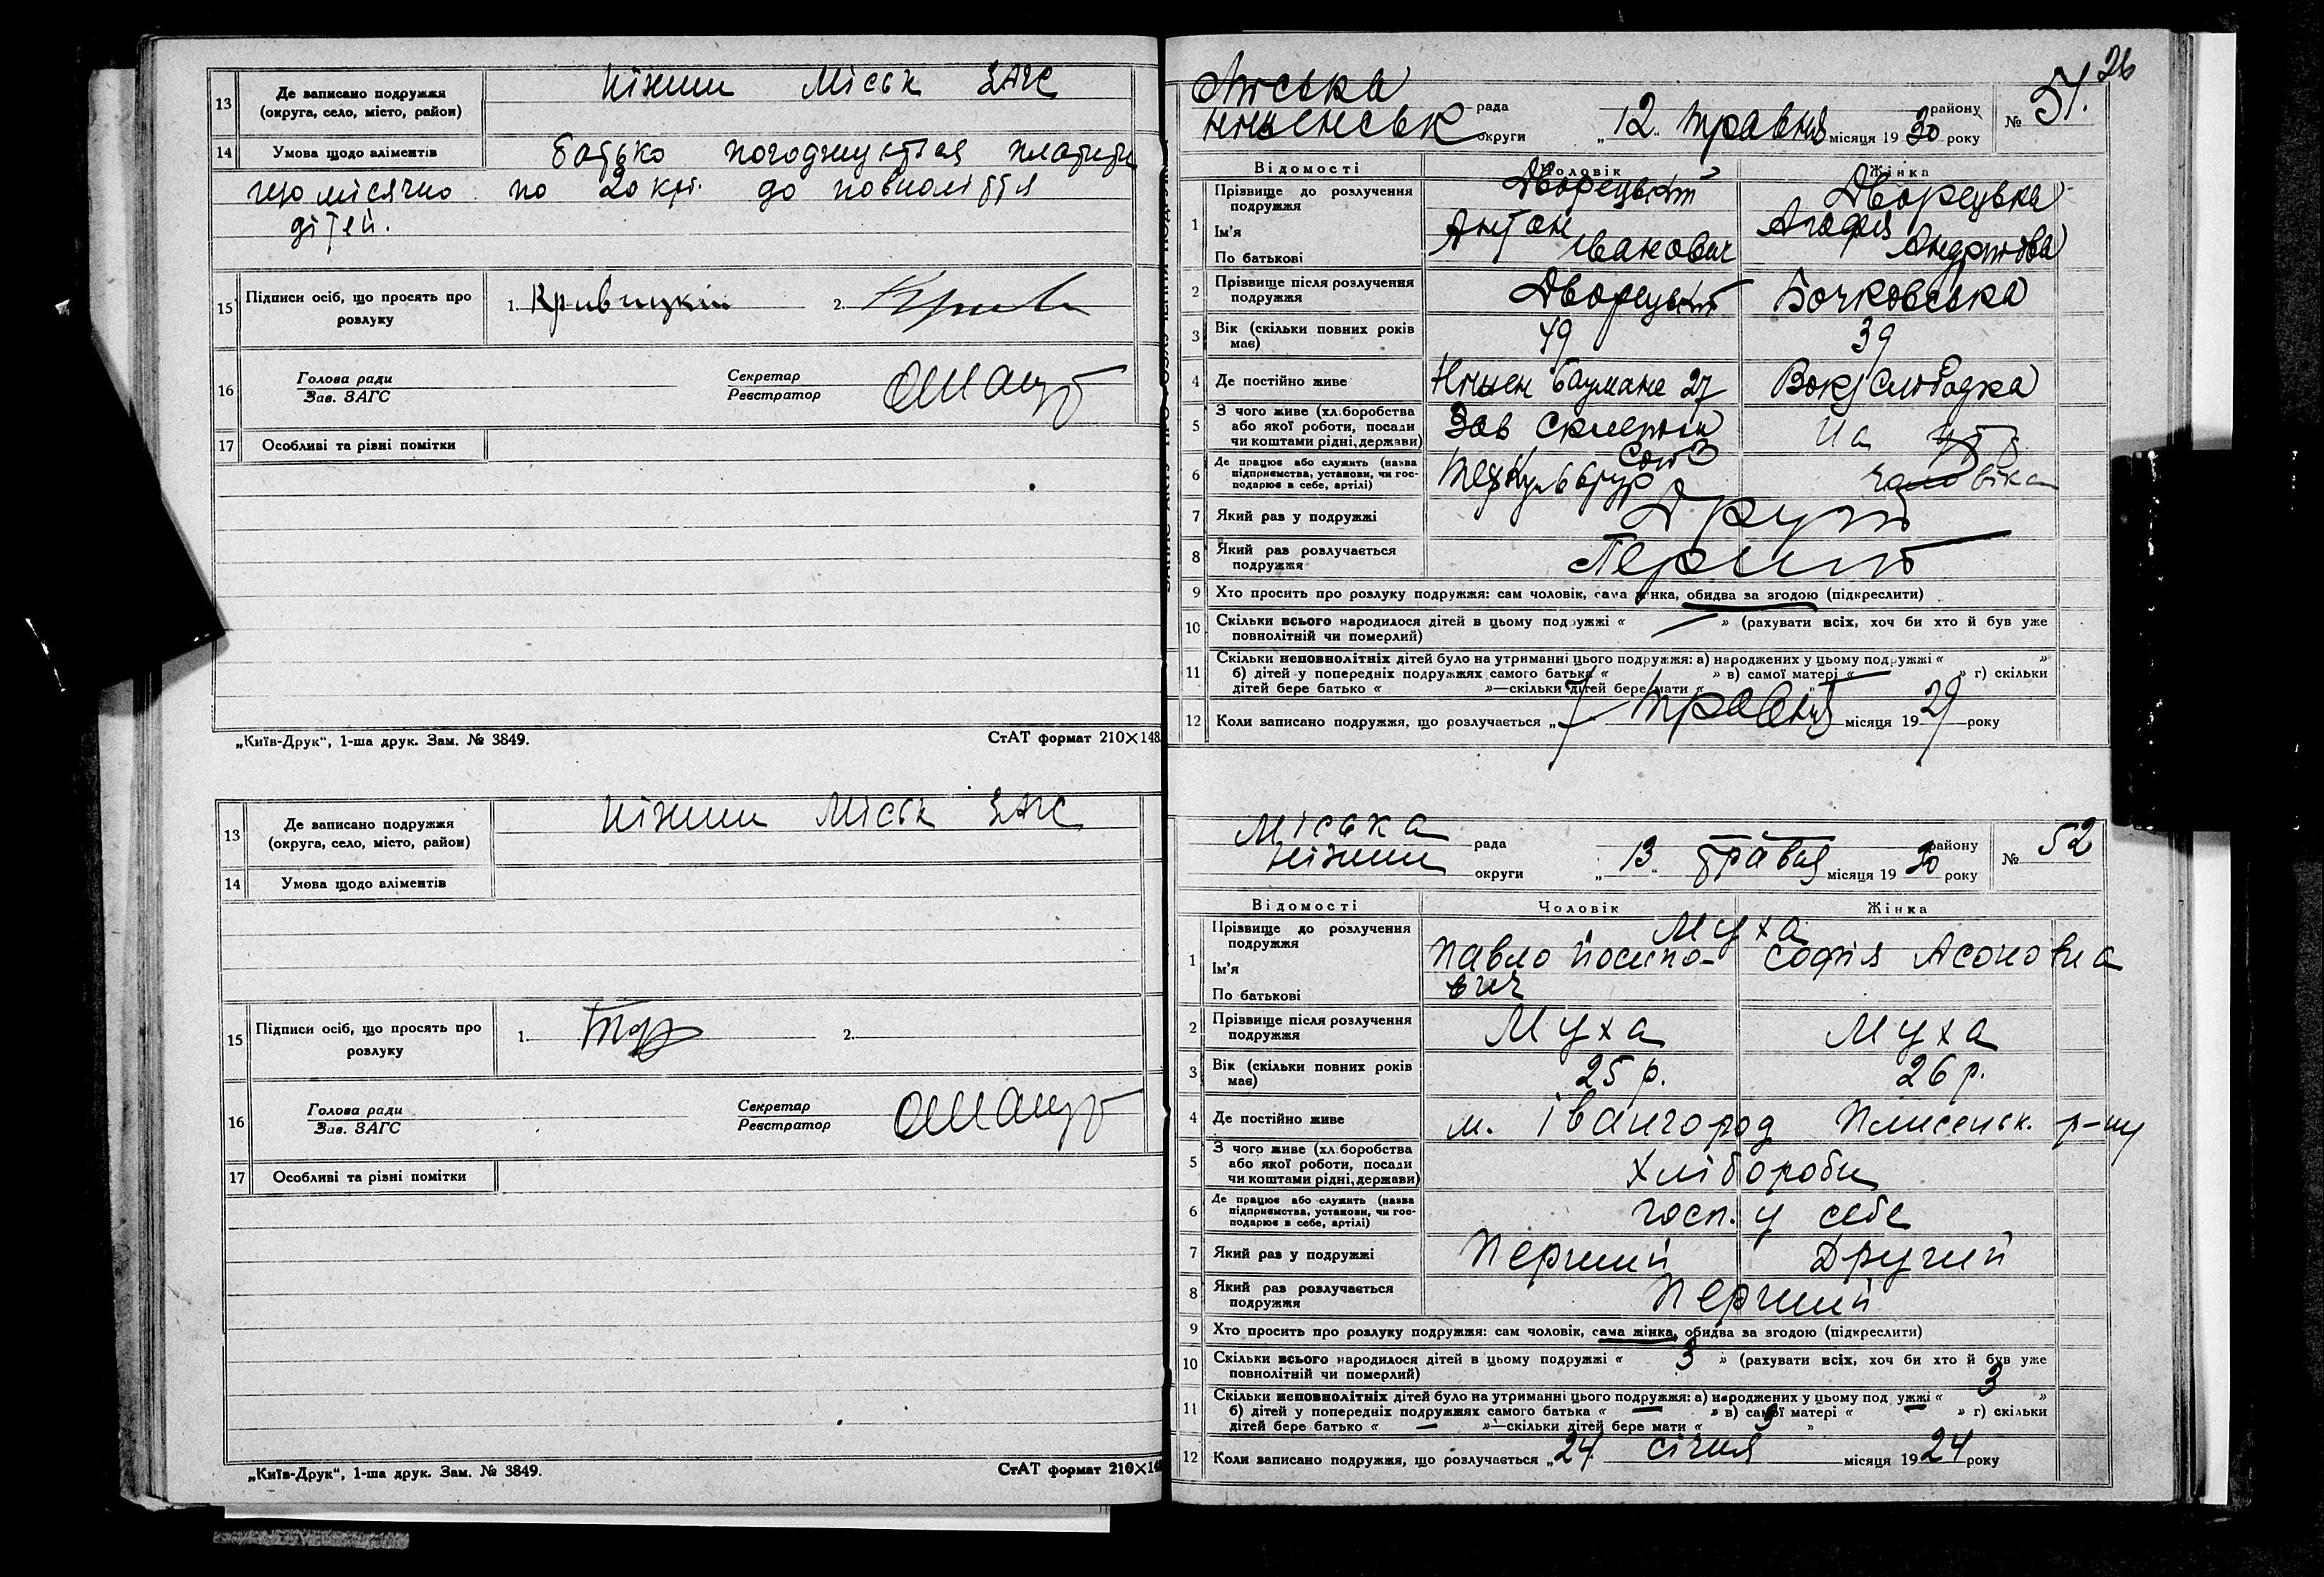 13 Де записано подружжя
(округа, село, місто, район)
Ніжин Міськ ЗАГС
14 Умова щодо аліментів
батько погоджується платити
що місячно по 20 крб. до повноліття
дітей.
15 Підписи осіб, що просять про
розлуку
1. Кривицкій 2.
16 Голова ради
Зав. ЗАГС
Секретар
Реєстратор
17 Особливі та різні помітки
„Київ-Друк“, 1-ша друк. Зам. № 3849. СтАТ формат 210×148
13 Де записано подружжя
(округа, село, місто, район)
Ніжин Міськ ЗАГС
14 Умова щодо аліментів
15 Підписи осіб, що просять про
розлуку
1. 2.
16 Голова ради
Зав. ЗАГС
Секретар
Реєстратор
17 Особливі та різні помітки
„Київ-Друк“, 1-ша друк. Зам. № 3849. СтАТ формат 210×14
26
Міська рада району
Ніженськ округи „12“ травня місяця 1930 року № 51.
Відомості Чоловік Жінка
1 Прізвище до розлучення
подружжя
Дворецькій Дворецька
Ім'я
Антон Агафія
По батькові
Іванович Андріївна
2 Прізвище після розлучення
подружжя
Дворецькій Бочковська
3 Вік (скільки повних років
має)
49 39
4 Де постійно живе
Ніжен Баумана 27 Вокз Слободка
5 З чого живе (хл.боробства
або якої роботи, посади
чи коштами рідні, держави)
Зав На
6 Де працює або служить (назва
підприємства, установи, чи гос-
подарює в себе, артілі)
Союз
чоловіка
7 Який раз у подружжі
Другий
8 Який раз розлучається
подружжя
Перший
9 Хто просить про розлуку подружжя: сам чоловік, сама жінка, обидва за згодою (підкреслити)
10 Скільки всього народилося дітей в цьому подружжі « — » (рахувати всіх, хоч би хто й був уже
повнолітній чи померлий)
11 Скільки неповнолітніх дітей було на утриманні цього подружжя: а) народжених у цьому подружжі « »
б) дітей у попередніх подружжях самого батька « » в) самої матері « — » г) скільки
дітей бере батько « »—скільки дітей бере мати « »
12 Коли записано подружжя, що розлучається „7“ травня місяця 1929 року
Міська рада району
Ніжин округи „13“ травня місяця 1930 року № 52
Відомості Чоловік Жінка
1 Прізвище до розлучення
подружжя
Муха
Ім'я
Павло Йосипо- Софія Асоновна
По батькові
вич
2 Прізвище після розлучення
подружжя
Муха Муха
3 Вік (скільки повних років
має)
25 р. 26 р.
4 Де постійно живе
м. Івангород Плисеньк. р-ну
5 З чого живе (хл.боробства
або якої роботи, посади
чи коштами рідні, держави)
Хлібороби
6 Де працює або служить (назва
підприємства, установи, чи гос-
подарює в себе, артілі)
госп. у себе
7 Який раз у подружжі
Перший Другий
8 Який раз розлучається
подружжя
Перший
9 Хто просить про розлуку подружжя: сам чоловік, сама жінка, обидва за згодою (підкреслити)
10 Скільки всього народилося дітей в цьому подружжі « 3 » (рахувати всіх, хоч би хто й був уже
повнолітній чи померлий)
11 Скільки неповнолітніх дітей було на утриманні цього подружжя: а) народжених у цьому подружжі « 3 »
б) дітей у попередніх подружжях самого батька « — » в) самої матері « — » г) скільки
дітей бере батько « — »—скільки дітей бере мати « 3 »
12 Коли записано подружжя, що розлучається „24“ січня місяця 1924 року